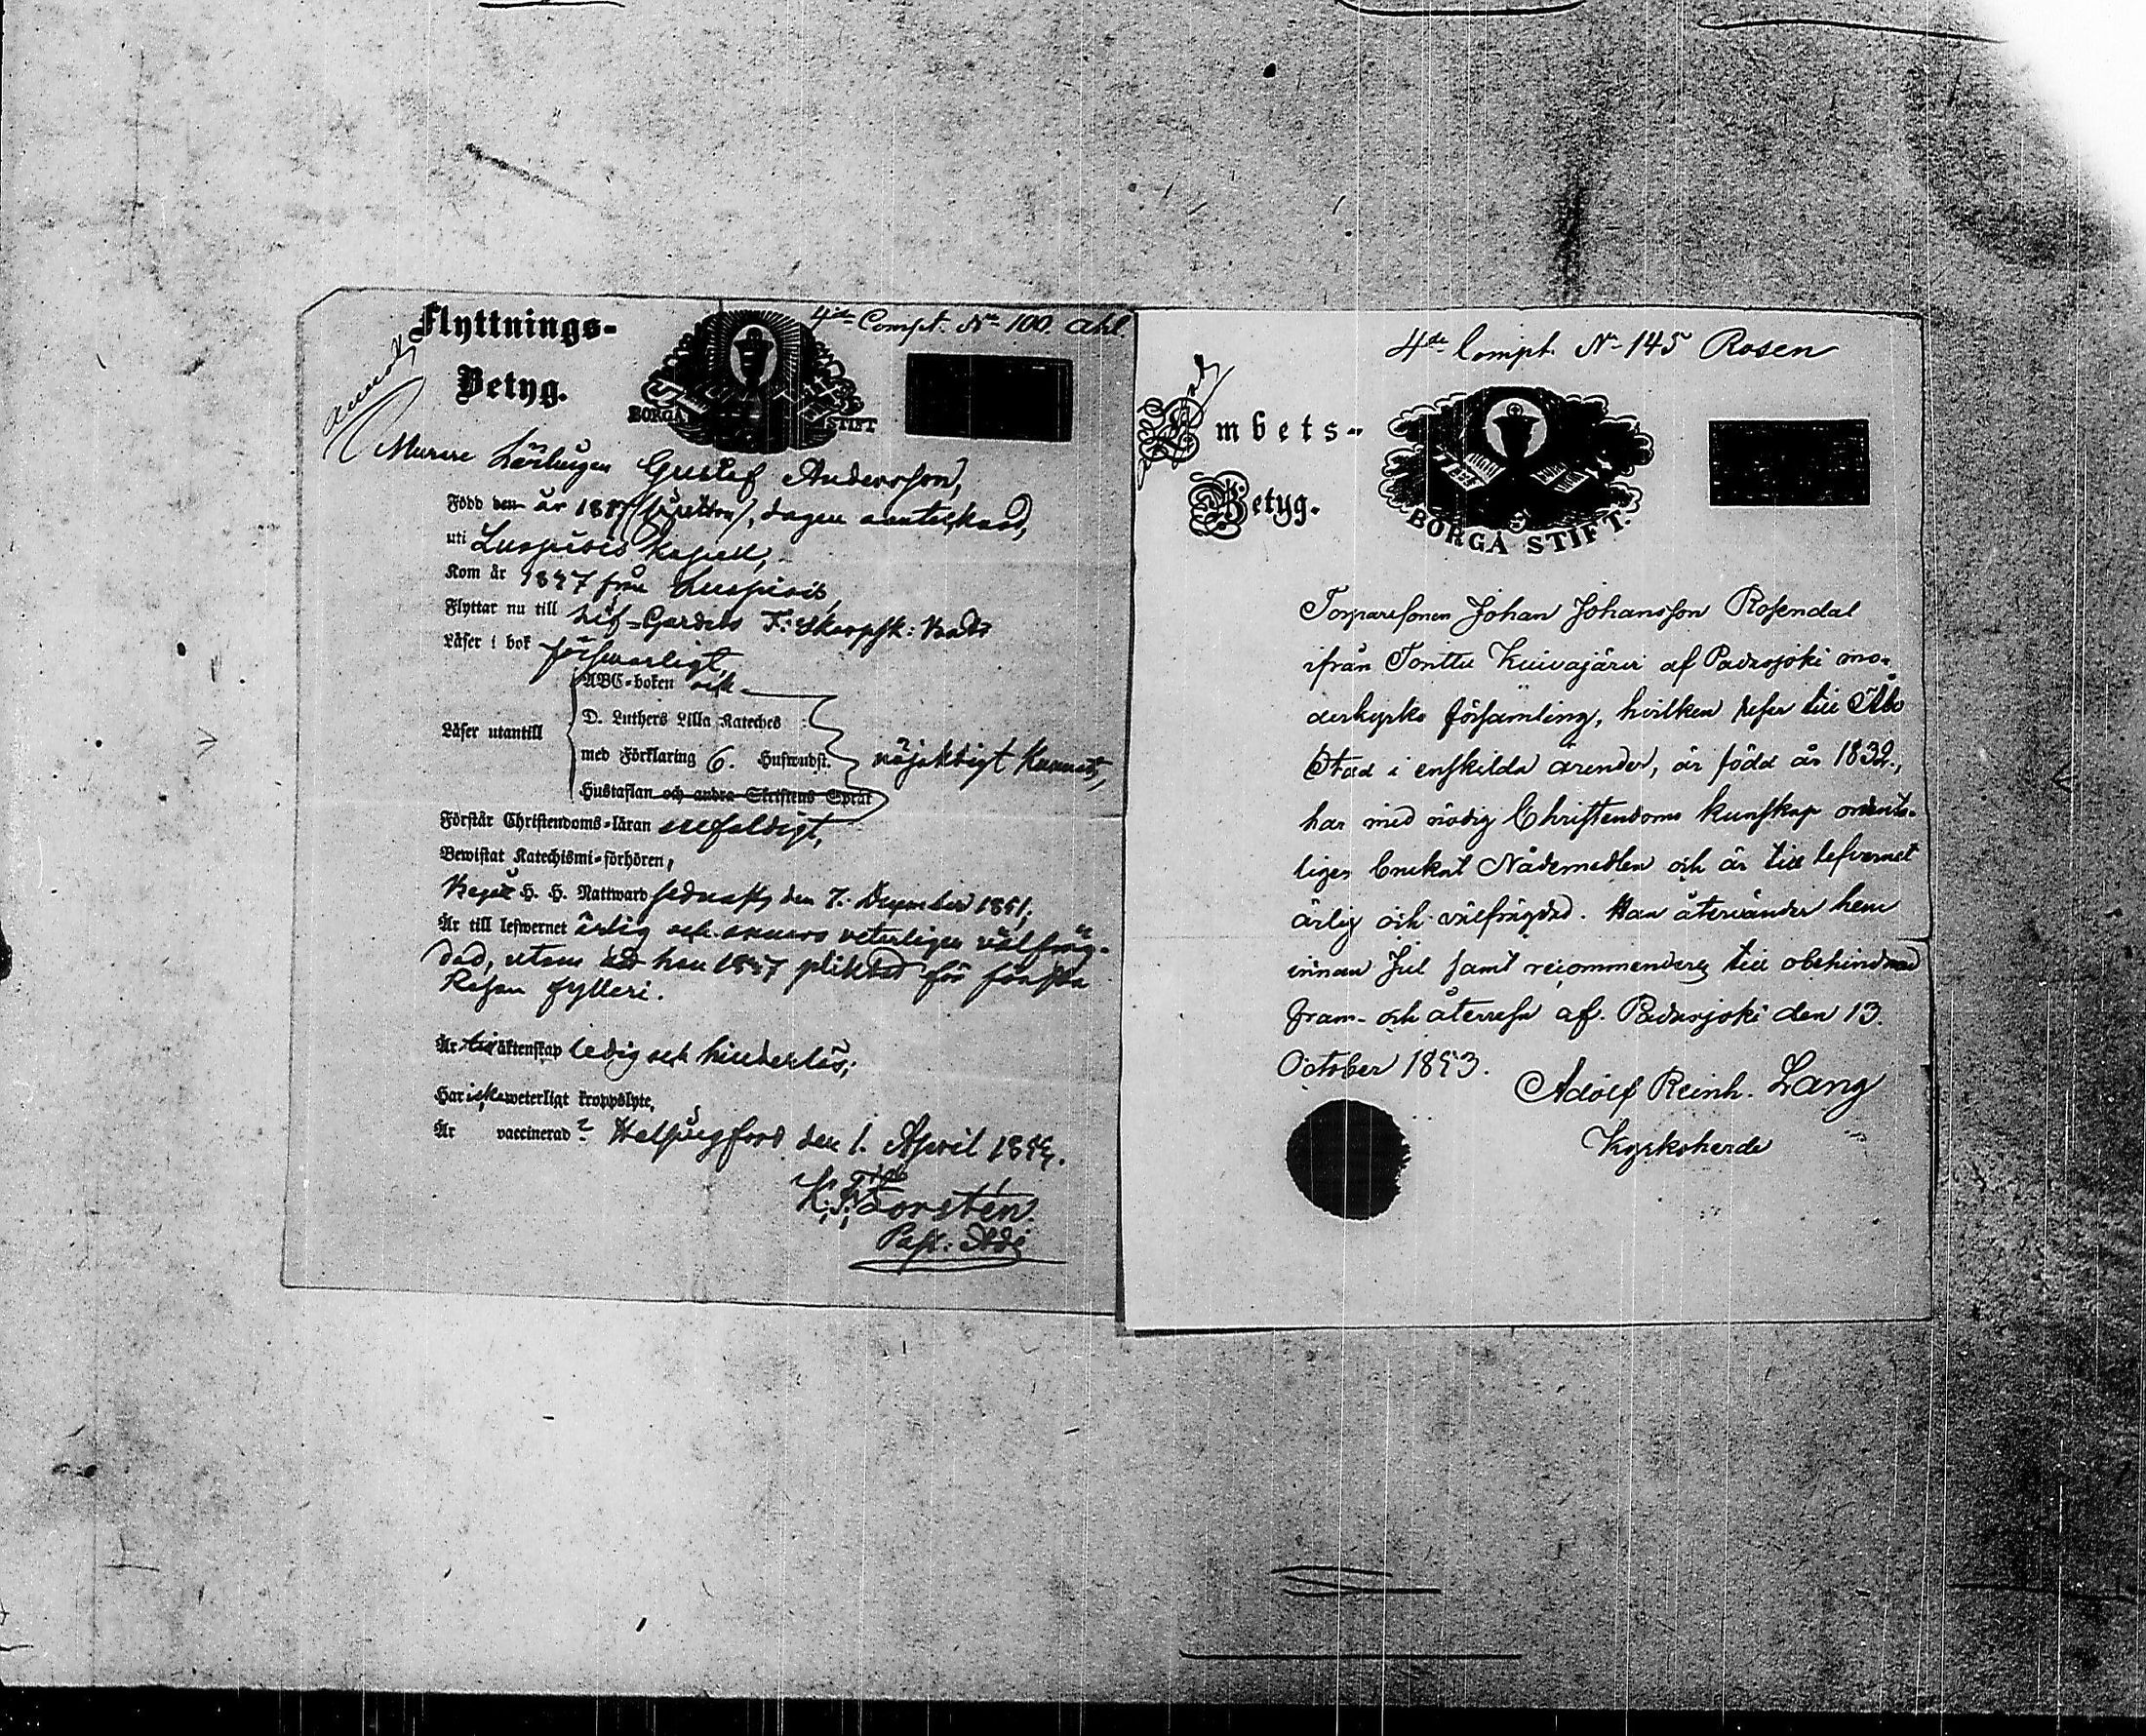 Flyttnings-
Betyg.
BORGÅ STIFT
4de Compt. No 100. Ahl.
Murare Lärlingen Gustaf Andersson,
Född den år dagen
uti Kapell,
Kom år från
Flyttar nu till Lif-Gardets F: Skarpsk: Batl:
Läser i bok försvarligt,
Läser utantill
ABC-boken och
D. Luthers Lilla Kateches
med Förklaring 6. Hufwudst. nöjaktigt
Hustaflan och andra Skriftens Språk
Förstår Christendoms-läran enfaldigt,
Bewistat Katechismi-förhören,
Begått H. H. Nattward sednast den 7. December 1851;
Är till lefwernet ärlig och veterligen välfräg-
dad, utom att han pliktat för första
Resan fylleri.
Är till äktenskap ledig och hinderlös;
Har icke weterligt kroppslyte,
Är vaccinerad? Helsingfors den 1. April
K. F. Forstén.
Past: Adj:
4de Compt. No 145 Rosen
Embets-
Betyg.
BORGÅ STIFT.
Torparesonen Johan Johansson Rosendal
ifrån Tonttu Kuivajärvi af Padasjoki mo-
derkyrko församling, hvilken reser till Åbo
Stad i enskilda ärender, är född år 1832.,
har med nödig Christendoms kunskap ordent-
ligen brukat Nådemedlen och är till lefvernet
ärlig och välfrägdad. Han återvänder hem
innan Jul samt recommenderas till obehindrad
fram- och återresa af. Padasjoki den 13.
October 1853.
Adolf Reinh. Lang
Kyrkoherde